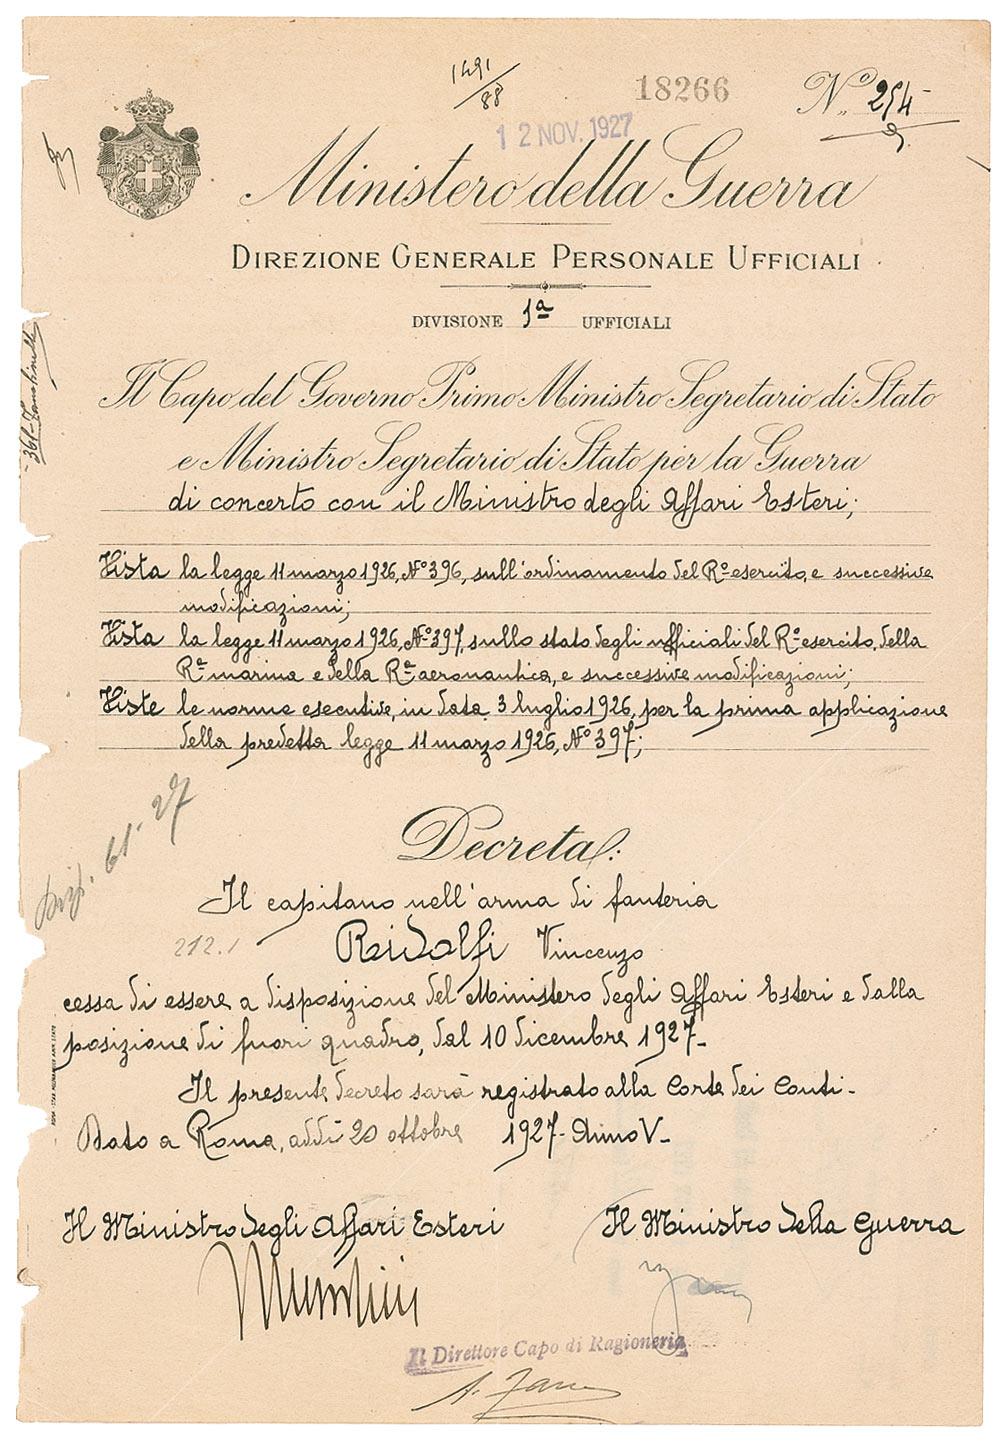 1491/88
18266
N.º 254
12 NOV. 1927
Ministero della Guerra
DIREZIONE GENERALE PERSONALE UFFICIALI
DIVISIONE 1ª UFFICIALI
Il Capo del Governo Primo Ministro Segretario di Stato
e Ministro Segretario di Stato per la Guerra
di concerto con il Ministro degli Affari Esteri;
Vista la legge 11 marzo 1926, Nº 396, sull'ordinamento del Rº esercito, e successive
modificazioni;
Vista la legge 11 marzo 1926, Nº 397, sullo stato degli ufficiali del Rº esercito, della
Rª marina e della Rª aeronautica, e successive modificazioni;
Viste le norme esecutive, in data 3 luglio 1926, per la prima applicazione
della predetta legge 11 marzo 1926, Nº 397;
61-27
Decreta:
Il capitano nell'arma di fanteria
212.1
Ridolfi Vincenzo
cessa di essere a disposizione del Ministero degli Affari Esteri e dalla
posizione di fuori quadro, dal 10 dicembre 1927-
Il presente decreto sarà registrato alla Corte dei Conti-
Dato a Roma, addì 20 ottobre 1927- Anno V-
Il Ministro degli Affari Esteri
Il Ministro della Guerra
Mussolini
Il Direttore Capo di Ragioneria